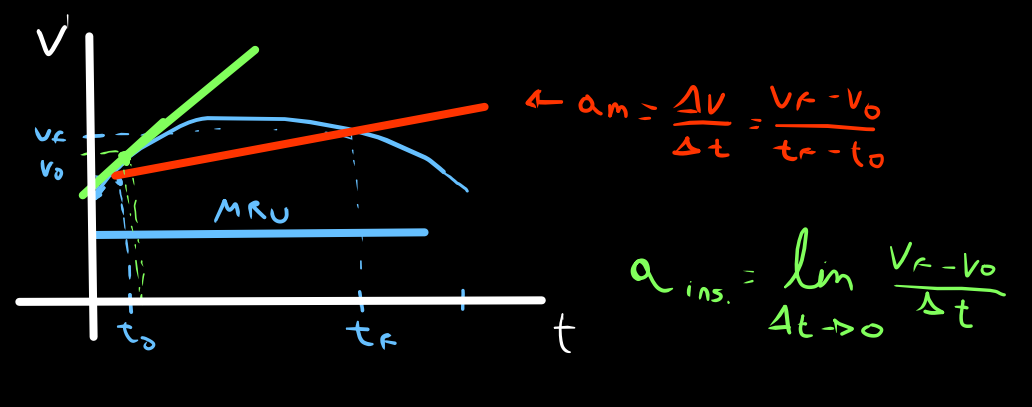 V
VF
V0
MRU
t0
tF
t
← am = ΔV/Δt = VF - V0/tF - t0
a ins. = lim Δt→0 VF - V0/Δt